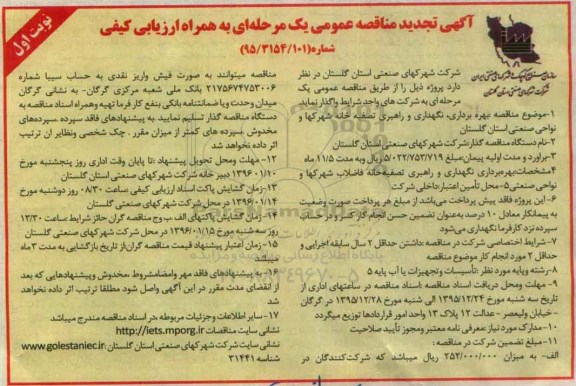 نوبت اول
آگهی تجدید مناقصه عمومی یک مرحله‌ای به همراه ارزیابی کیفی
شماره(۹۵/۳۱۵۴/۱۰۱)
شرکت شهرکهای صنعتی استان گلستان
شرکت شهرکهای صنعتی استان گلستان در نظر
دارد پروژه ذیل را از طریق مناقصه عمومی یک
مرحله‌ای به شرکت های واجد شرایط واگذار نماید
۱-موضوع مناقصه بهره برداری، نگهداری و راهبری تصفیه خانه شهرکها و
نواحی صنعتی استان گلستان
۲-نام دستگاه مناقصه گذار:شرکت شهرکهای صنعتی استان گلستان
۳-برآورد و مدت اولیه پیمان:مبلغ ۵/۰۲۲/۷۵۳/۷۱۹ ریال وبه مدت ۱۱/۵ ماه
۴-مشخصات:بهره‌برداری نگهداری و راهبری تصفیه‌خانه فاضلاب شهرکها و
نواحی صنعتی ۵-محل تأمین اعتبار:داخلی شرکت
۶-این پروژه فاقد پیش پرداخت می‌باشد از مبلغ هر پرداخت صورت وضعیت
به پیمانکار معادل ۱۰ درصد به‌عنوان تضمین حسن انجام کار کسر و در حساب
سپرده نزد کارفرما نگهداری می‌شود
۷-شرایط اختصاصی شرکت در مناقصه:داشتن حداقل ۲ سال سابقه اجرایی و
حداقل ۲ مورد انجام کار موضوع مناقصه
۸-رشته وپایه مورد نظر :تأسیسات وتجهیزات یا آب پایه ۵
۹- مهلت ومحل دریافت اسناد مناقصه :اسناد مناقصه در ساعتهای اداری از
تاریخ سه شنبه مورخ ۱۳۹۵/۱۲/۲۴ الی شنبه مورخ ۱۳۹۵/۱۲/۲۸ در گرگان
- خیابان ولیعصر - عدالت ۱۲ پلاک ۱۳ واحد امور قراردادها توزیع میگردد
۱۰-مدارک مورد نیاز :معرفی نامه معتبر ومجوز تأیید صلاحیت
۱۱-مبلغ تضمین شرکت در مناقصه :
الف- به میزان ۲۵۲/۰۰۰/۰۰۰ ریال میباشد که شرکت‌کنندگان در
مناقصه میتوانند به صورت فیش واریز نقدی به حساب سیبا شماره
۲۱۷۵۶۷۴۷۵۳۰۰۶ بانک ملی شعبه مرکزی گرگان- به نشانی گرگان
میدان وحدت ویا ضمانتنامه بانکی بنفع کار فرما تهیه وهمراه اسناد مناقصه به
دستگاه مناقصه گذار تسلیم نمایید به پیشنهادهای فاقد سپرده .سپرده‌های
مخدوش .سپرده های کمتر از میزان مقرر . چک شخصی ونظایر ان ترتیب
اثر داده نخواهد شد
۱۲- مهلت ومحل تحویل پیشنهاد :تا پایان وقت اداری روز پنجشنبه مورخ
۱۳۹۶/۰۱/۱۰ دبیر خانه شرکت شهرکهای صنعتی استان گلستان
۱۳-زمان گشایش پاکت اسناد ارزیابی کیفی ساعت ۰۸/۳۰ روز دوشنبه مورخ
۱۳۹۶/۰۱/۱۴ در محل شرکت شهرکهای صنعتی گلستان
۱۴-زمان گشایش پاکتهای الف ب وج مناقصه گران حائز شرایط ساعت ۱۳/۳۰
روز سه شنبه مورخ ۱۳۹۶/۰۱/۱۵ در محل شرکت شهرکهای صنعتی گلستان
۱۵-زمان اعتبار پیشنهاد قیمت مناقصه گران:از تاریخ بازگشایی به مدت ۳ ماه
میباشد
۱۶- به پیشنهادهای فاقد مهر وامضا،مشروط مخدوش وپیشنهادهایی که بعد
از انقضای مدت مقرر در این آگهی واصل شود مطلقا ترتیب اثر داده نخواهد
شد
۱۷-سایر اطلاعات وجزئیات مربوطه،در اسناد مناقصه مندرج میباشد
نشانی سایت مناقصات :http://iets.mporg.ir
نشانی سایت شرکت شهرکهای صنعتی استان گلستان :www.golestaniec.ir
شناسه ۳۱۴۴۱